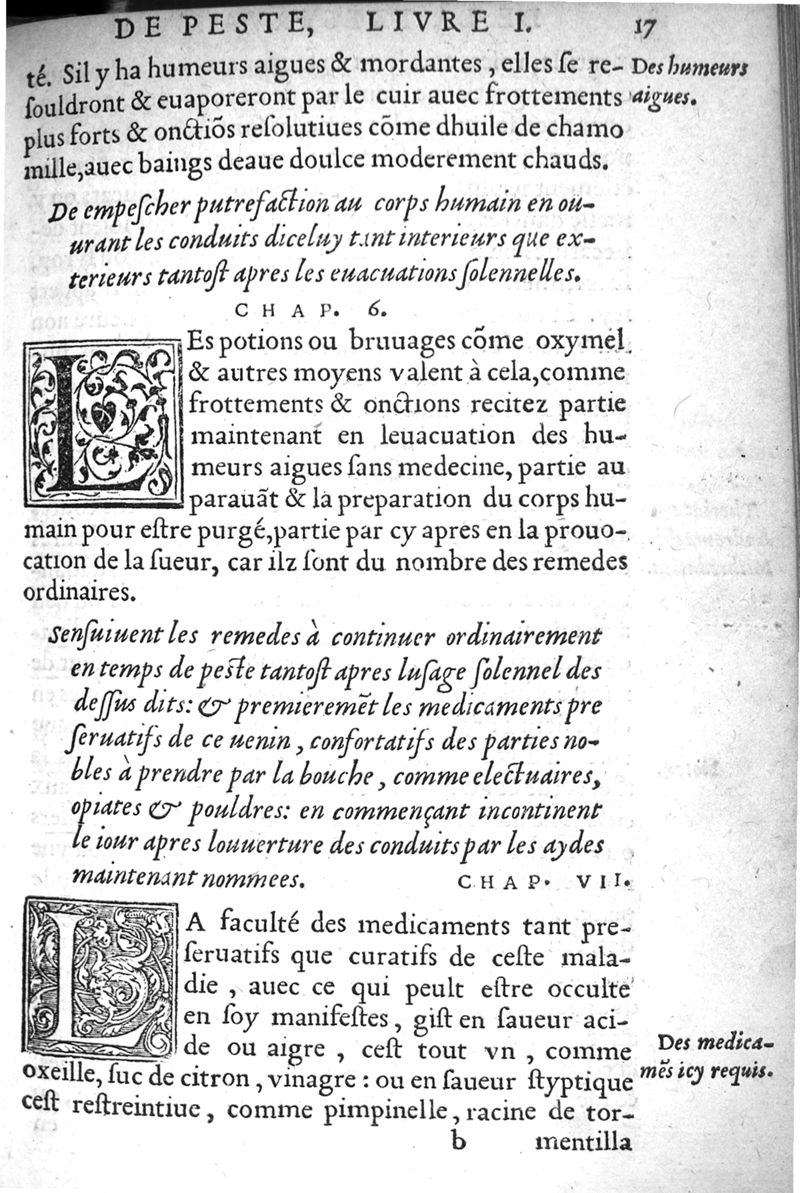 DE PESTE, LIVRE I. 17
té. Sil y ha humeurs aigues & mordantes, elles ſe re-
Des humeurs
ſouldront & euaporeront par le cuir auec frottements
aigues.
plus forts & onctiõs reſolutiues cõme dhuile de chamo
mille, auec baings deaue doulce moderement chauds.
De empeſcher putrefaction au corps humain en ou-
urant les conduits diceluy tant interieurs que ex-
terieurs tantoſt apres les euacuations ſolennelles.
CHAP. 6.
LEs potions ou bruuages cõme oxymel
& autres moyens valent à cela, comme
frottements & onctions recitez partie
maintenant en leuacuation des hu-
meurs aigues ſans medecine, partie au
parauãt & la preparation du corps hu-
main pour eſtre purgé, partie par cy apres en la prouo-
cation de la ſueur, car ilz ſont du nombre des remedes
ordinaires.
Senſuiuent les remedes à continuer ordinairement
en temps de peſte tantoſt apres luſage ſolennel des
deſſus dits: & premieremẽt les medicaments pre
ſeruatifs de ce uenin, confortatifs des parties no-
bles à prendre par la bouche, comme electuaires,
opiates & pouldres: en commençant incontinent
le iour apres louuerture des conduits par les aydes
maintenant nommees. CHAP. VII.
LA faculté des medicaments tant pre-
ſeruatifs que curatifs de ceſte mala-
die, auec ce qui peult eſtre occulte
en ſoy manifeſtes, giſt en ſaueur aci-
de ou aigre, ceſt tout vn, comme
Des medica-
oxeille, ſuc de citron, vinagre: ou en ſaueur ſtyptique
mẽs icy requis.
ceſt reſtreintiue, comme pimpinelle, racine de tor-
b mentilla